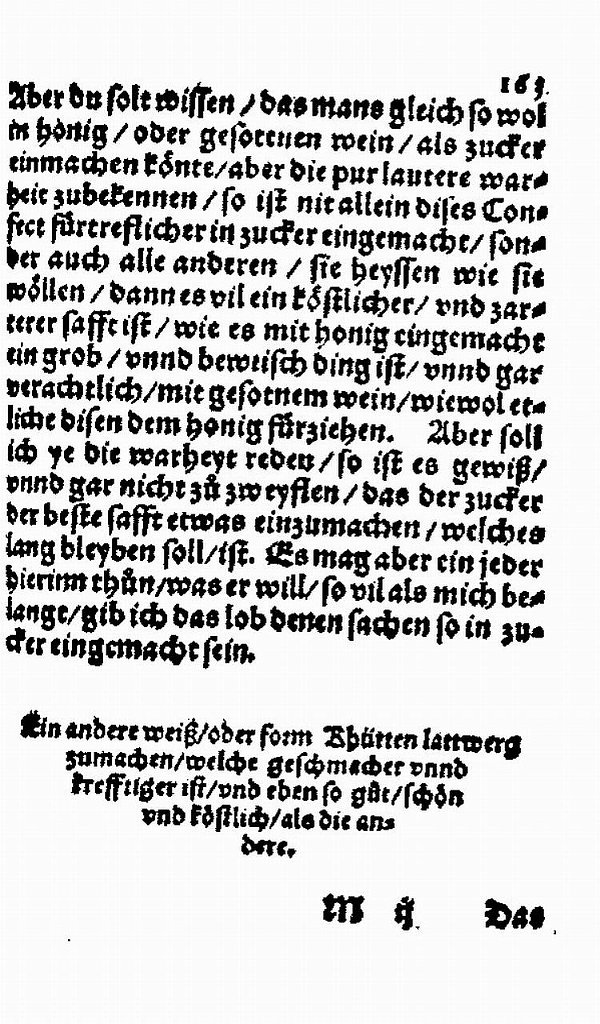 163.
Aber du solt wissen / das mans gleich so wol
in hönig / oder gesottenen wein / als zucker
einmachen könte/aber die pur lautere war⸗
heit zubekennen / so ist nit allein dises Con⸗
fect fürtreflicher in zucker eingemacht/ son⸗
der auch alle anderen / sie heyssen wie sie
wöllen / dann es vil ein köstlicher/ vnd zar⸗
terer safft ist / wie es mit honig eingemacht
ein grob / vnnd bewrisch ding ist/ vnnd gar
verachtlich/mit gesotnem wein/wiewol et⸗
liche disen dem honig fürziehen. Aber soll
ich ye die warheyt reden / so ist es gewiß/
vnnd gar nicht zů zweyflen / das der zucker
der beste safft etwas einzumachen / welches
lang bleyben soll/ist. Es mag aber ein jeder
hierinn thůn/was er will/ so vil als mich be⸗
lange/gib ich das lob denen sachen so in zu⸗
cker eingemacht sein.
Ein andere weiß/oder form Khütten lattwerg
zumachen/welche geschmacher vnnd
krefftiger ist/vnd eben so gůt/schön
vnd köstlich/als die an⸗
dere.
M ij Das